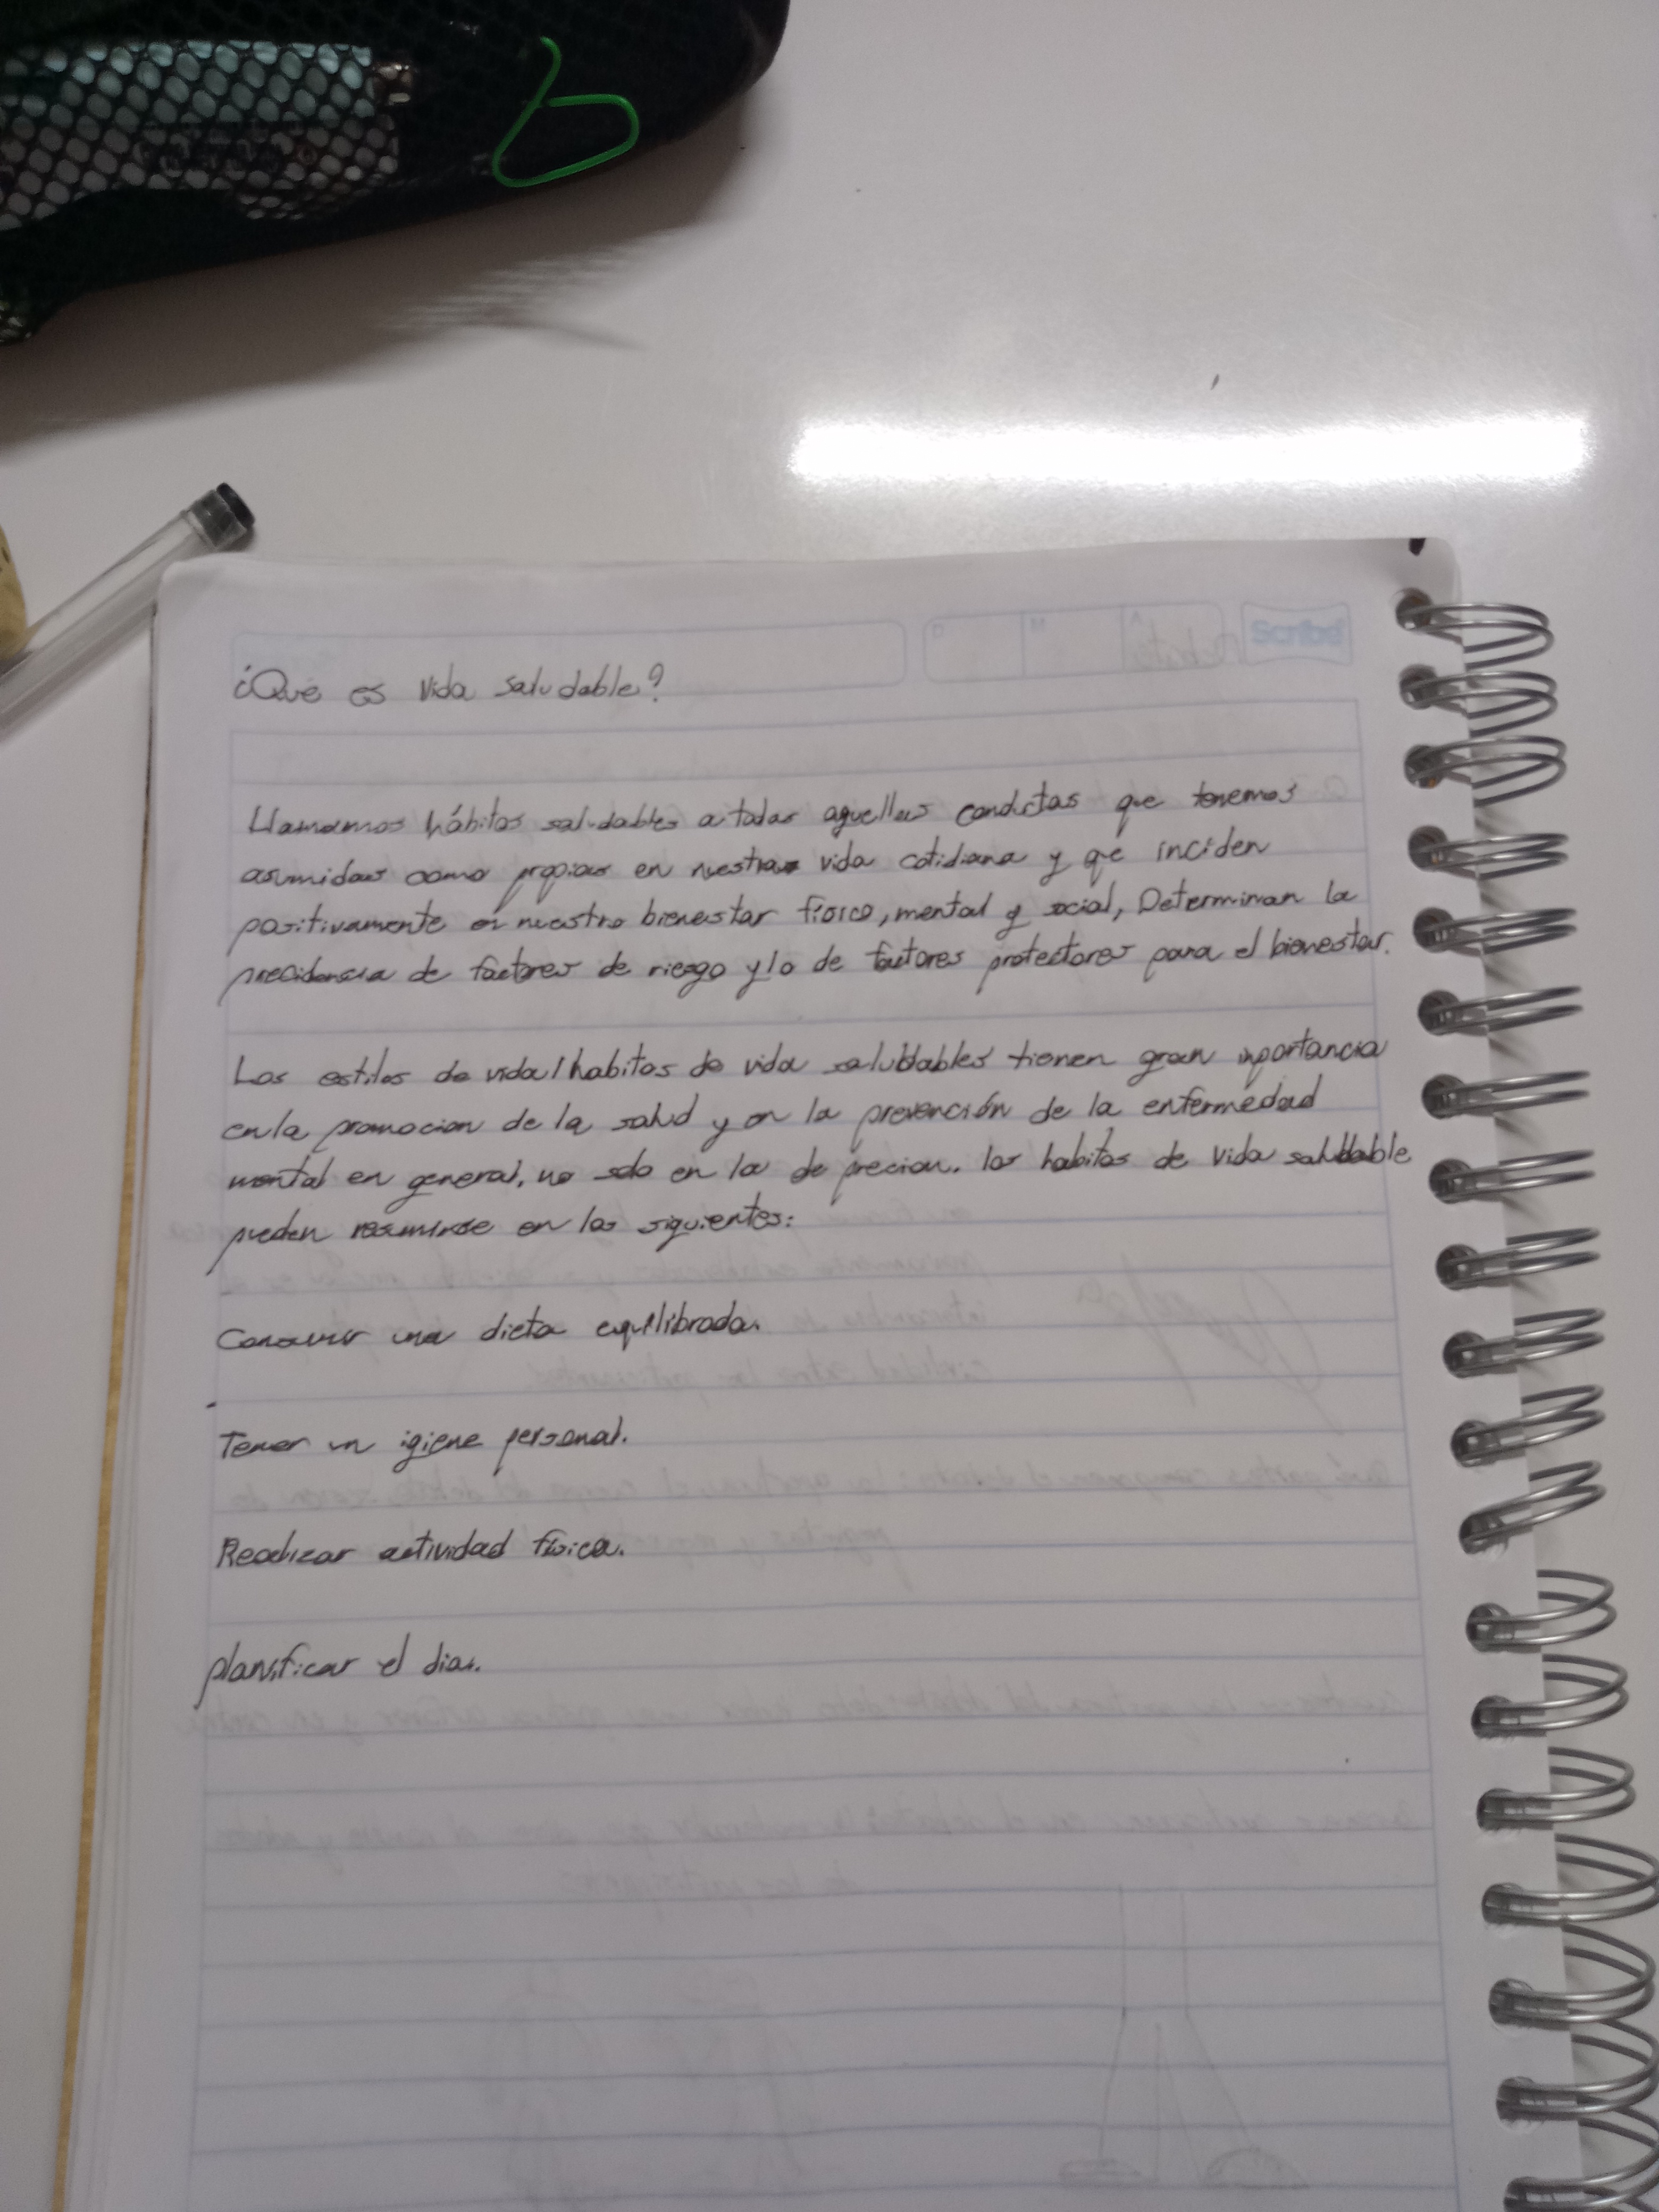 Scribe
D M A
¿Que es vida saludable?
Llamamos hábitos saludables a todas aquellas conductas que tenemos
asumidas como propias en nuestra vida cotidiana y que inciden
positivamente en nuestro bienestar físico, mental y social, Determinan la
de factores de riesgo y/o de factores protectores para el bienestar.
Los estilos de vida/habitos de vida saludables tienen gran inportancia
en la promocion de la salud y en la prevención de la enfermedad
mental en general, no solo en la de precion. los habitos de vida saludable
pueden resumirse en los siguientes:
Consumir una dieta equilibrada.
Tener un igiene personal.
Realizar actividad física.
planificar el dia.